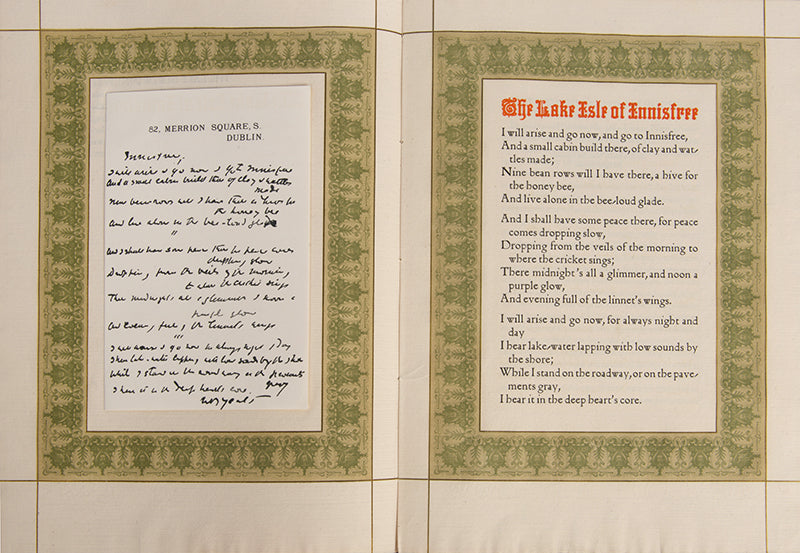 82, MERRION SQUARE, S.
DUBLIN.
Innisfree,
I will arise & go now & go to Innisfree
And a small cabin build there of clay & wattles
made
Nine bean rows will I have there a hive for
the honey bee
And live alone in the bee-loud glade
II
And I shall have some peace there for peace comes
dropping slow
Dropping from the veils of the morning,
to where the cricket sings
There midnight's all a glimmer & noon a
purple glow
And evening full of the linnet's wings
III
I will arise & go now for always night & day
I hear lake-water lapping with low sounds by the shore
While I stand on the roadway or on the pavements
gray
I hear it in the deep heart's core.
WB Yeats
The Lake Isle of Innisfree
I will arise and go now, and go to Innisfree,
And a small cabin build there, of clay and wat-
tles made;
Nine bean rows will I have there, a hive for
the honey bee,
And live alone in the bee-loud glade.
And I shall have some peace there, for peace
comes dropping slow,
Dropping from the veils of the morning to
where the cricket sings;
There midnight's all a glimmer, and noon a
purple glow,
And evening full of the linnet's wings.
I will arise and go now, for always night and
day
I hear lake-water lapping with low sounds by
the shore;
While I stand on the roadway, or on the pave-
ments gray,
I hear it in the deep heart's core.